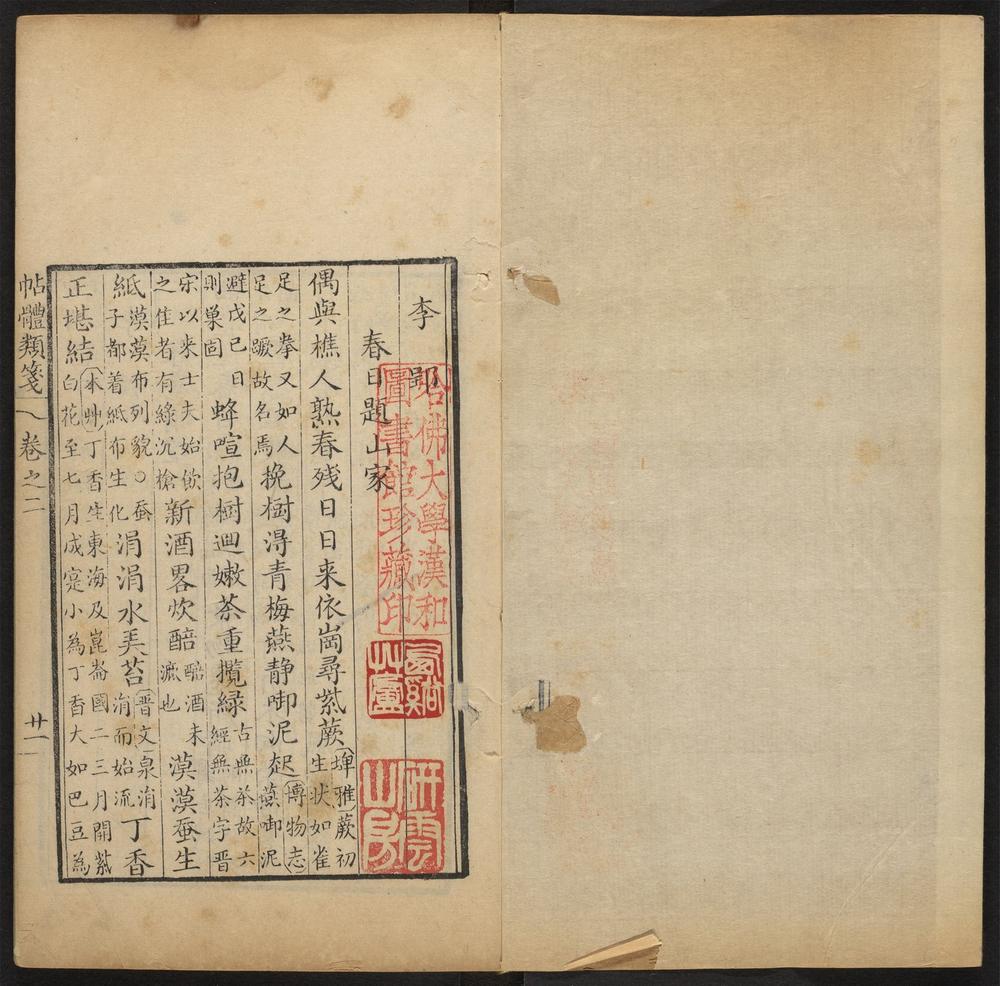 李郢
春日題山家
偶與樵人熟春残日日来依崗尋紫蕨
埤雅蕨初
生状如雀
足之拳又如人
足之蹶故名焉
挽樹淂青梅燕静啣泥起
博物志
燕啣泥
避戊巳日
則巢固
蜂喧抱樹迴嫩茶重攬緑
古無茶故六
經無茶字晋
宋以来士夫始飲
之佳者有綠沉槍
新酒畧炊醅
醅酒未
漉也
漠漠蚕生
紙
漠漠布列貌○蚕
子都着紙布生化
涓涓水弄苔
晋文泉涓
涓而始流
丁香
正堪結
本艸丁香生東海及崑崙國二三月開紫
白花至七月成寔小為丁香大如巴豆為
帖體類箋
卷之二
廿一
哈佛大學漢和
圖書館珍藏印
艸廬
研雲
山房